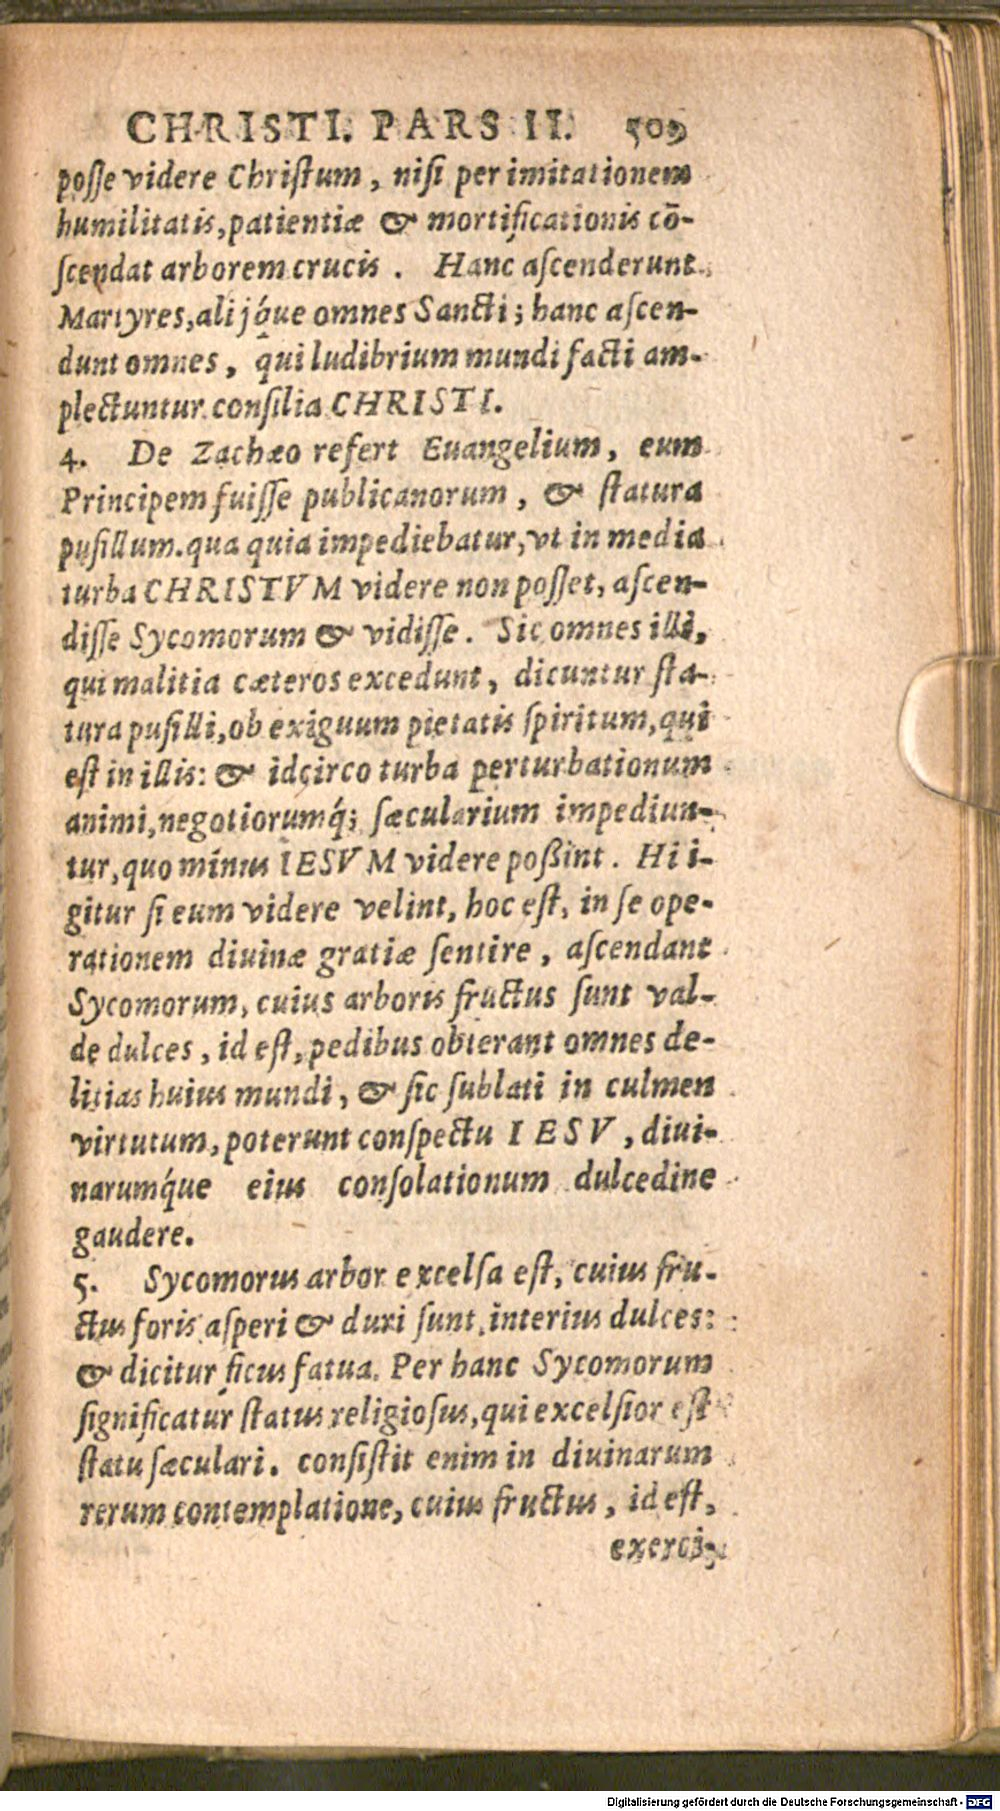 CHRISTI. PARS II. 509
posse videre Christum, nisi per imitationem
humilitatis, patientiæ & mortificationis cō-
scendat arborem crucis. Hanc ascenderunt
Martyres, alijq́ue omnes Sancti; hanc ascen-
dunt omnes, qui ludibrium mundi facti am-
plectuntur consilia CHRISTI.
4. De Zachæo refert Euangelium, eum
Principem fuisse publicanorum, & statura
pusillum. qua quia impediebatur, vt in media
turba CHRISTVM videre non posset, ascen-
disse Sycomorum & vidisse. Sic omnes illi,
qui malitia cæteros excedunt, dicuntur sta-
tura pusilli, ob exiguum pietatis spiritum, qui
est in illis: & idcirco turba perturbationum
animi, negotiorumq́; sæcularium impediun-
tur, quo minus IESVM videre poßint. Hi i-
gitur si eum videre velint, hoc est, in se ope-
rationem diuinæ gratiæ sentire, ascendant
Sycomorum, cuius arboris fructus sunt val-
de dulces, id est, pedibus obterant omnes de-
litias huius mundi, & sic sublati in culmen
virtutum, poterunt conspectu IESV, diui-
narumq́ue eius consolationum dulcedine
gaudere.
5. Sycomorus arbor excelsa est, cuius fru-
ctus foris asperi & duri sunt, interius dulces:
& dicitur ficus fatua. Per hanc Sycomorum
significatur status religiosus, qui excelsior est
statu sæculari. consistit enim in diuinarum
rerum contemplatione, cuius fructus, id est,
exerci-
Digitalisierung gefördert durch die Deutsche Forschungsgemeinschaft - DFG